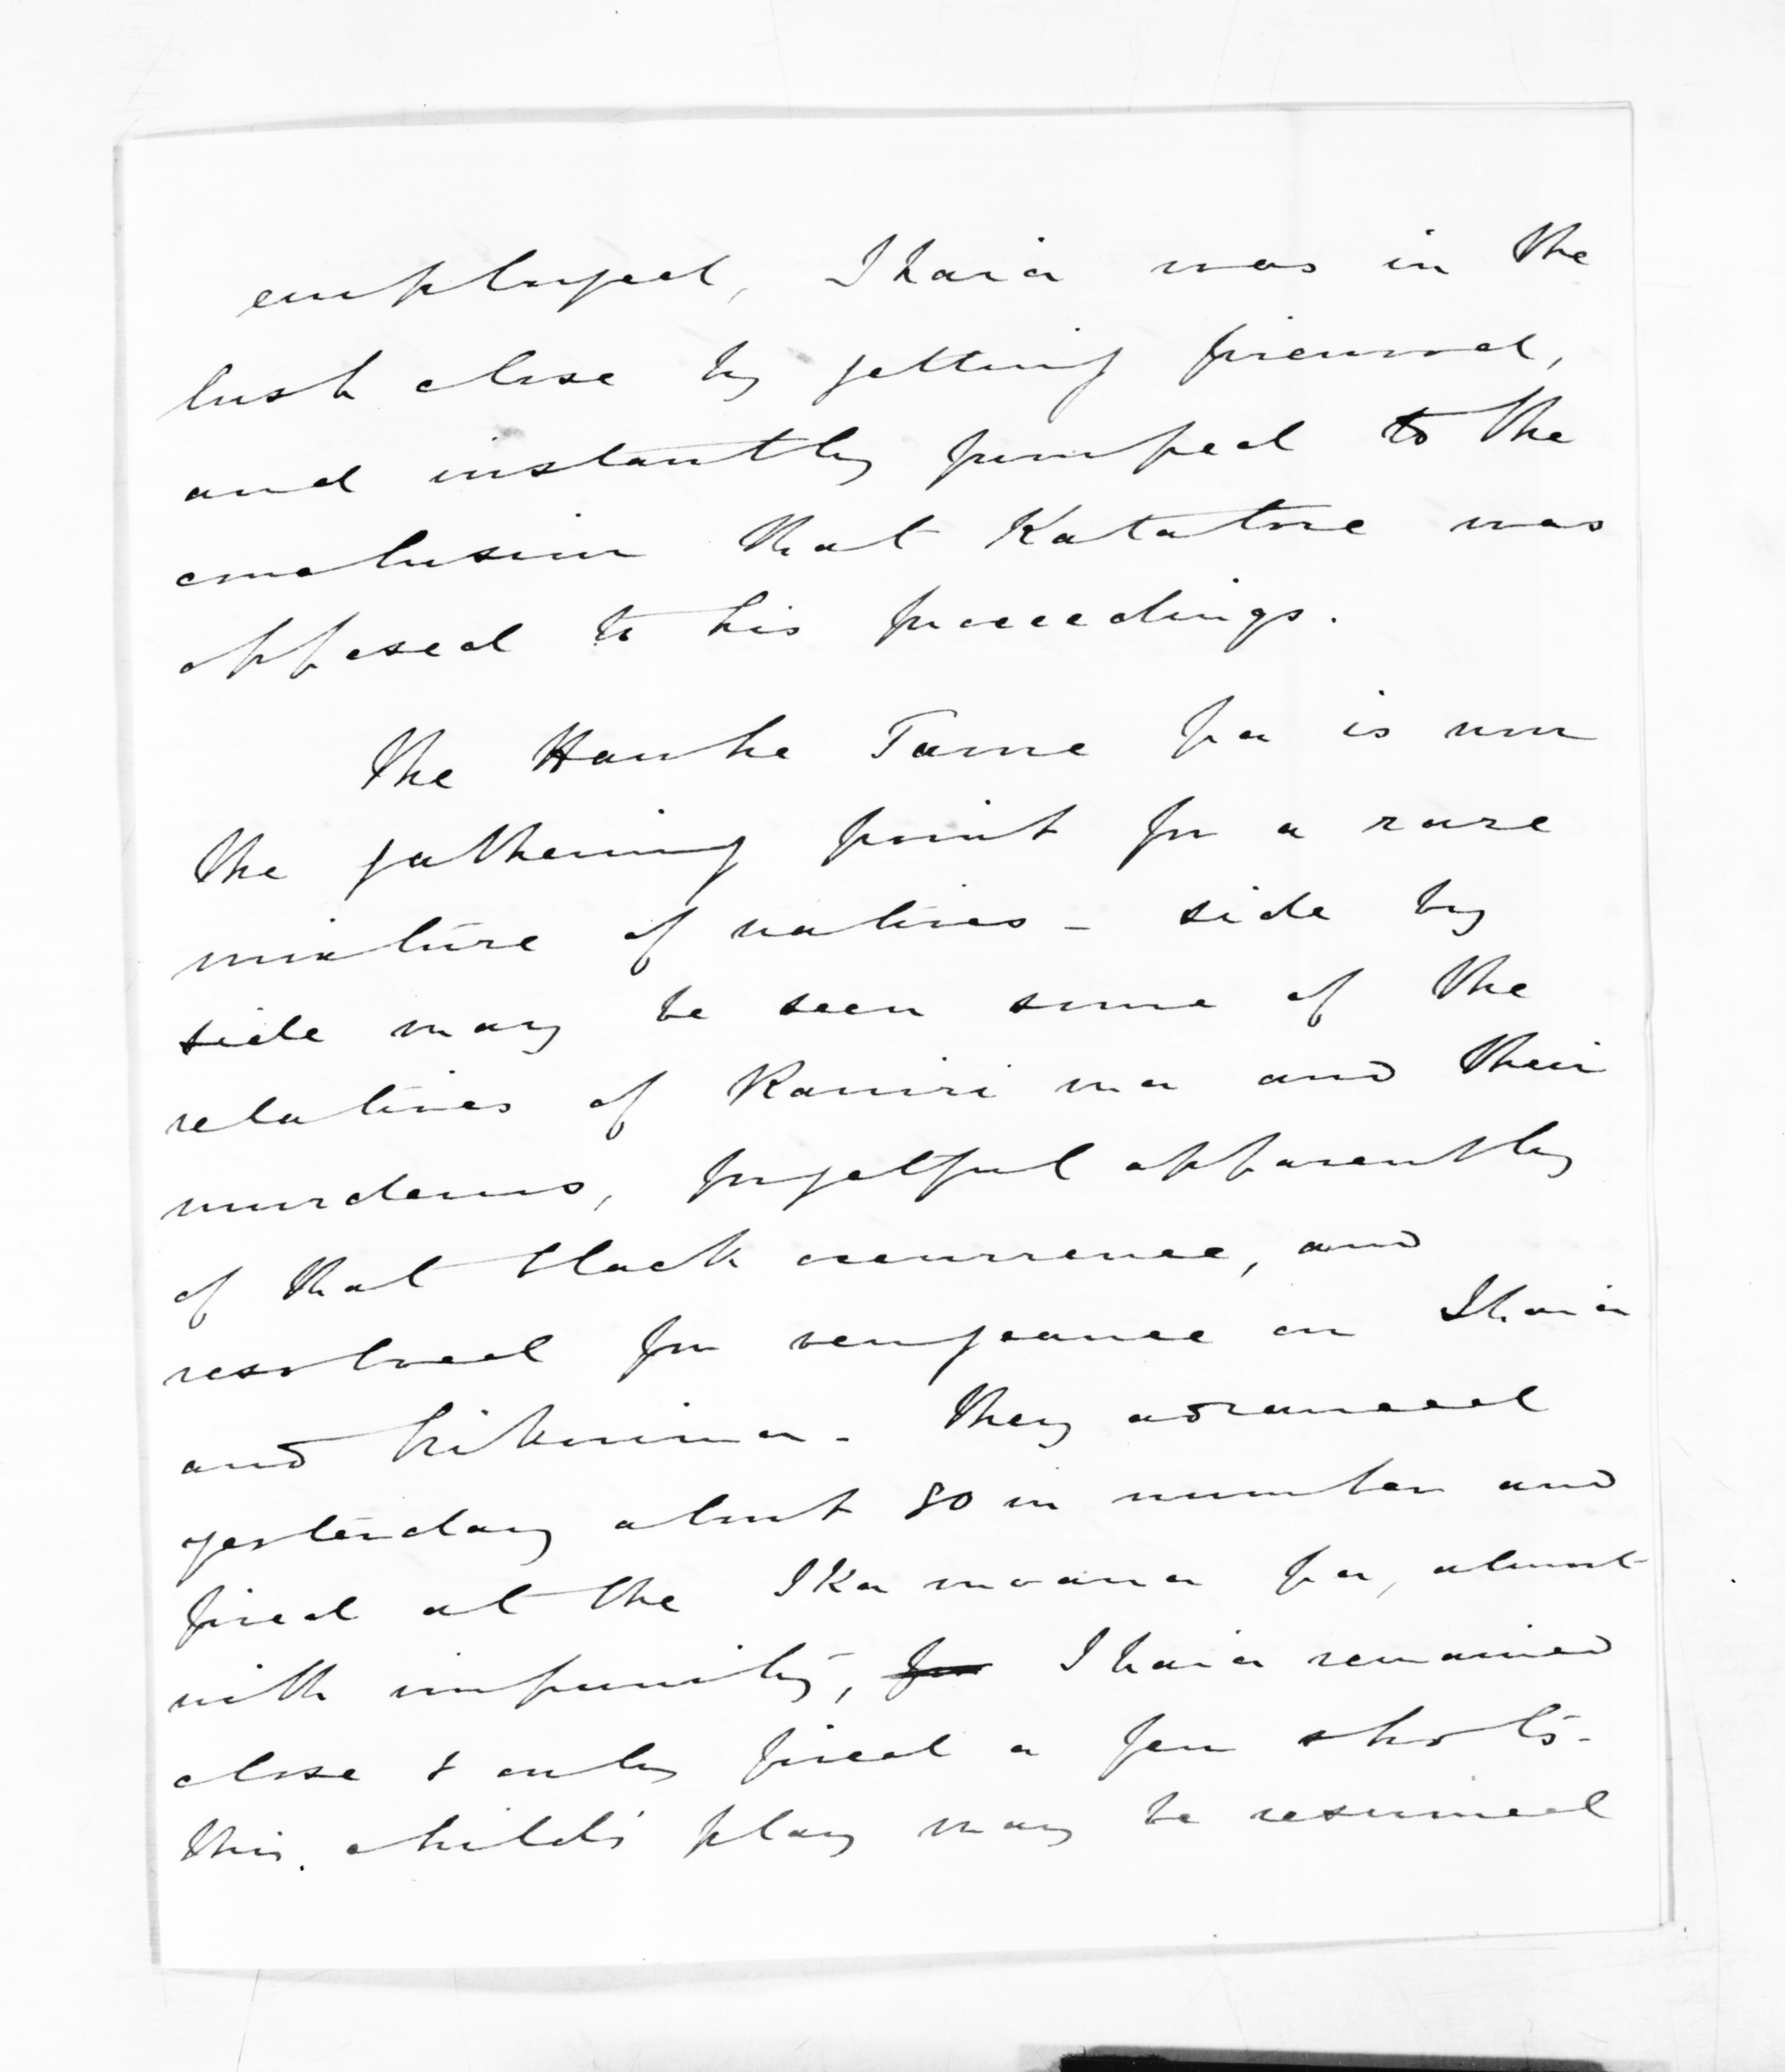 employed, Ihaia was in the
bush close by getting firewood,
and instantly jumped to the
conclusion that Katatore was
opposed to his proceedings.
The Hawhe Taone pa is now
the gathering point for a rare
mixture of natives - side by
side may be seen some of the
relatives of Rawiri ma and their
murderers, forgetful apparently
of that black occurrence, and
resolved for vengeance on Ihaia
and Nikorima. They advanced
yesterday about 80 in number and
fired at the Ika moana pa, almost
with impunity, for Ihaia remained
close & only fired a few shots.
This child's play may be resumed